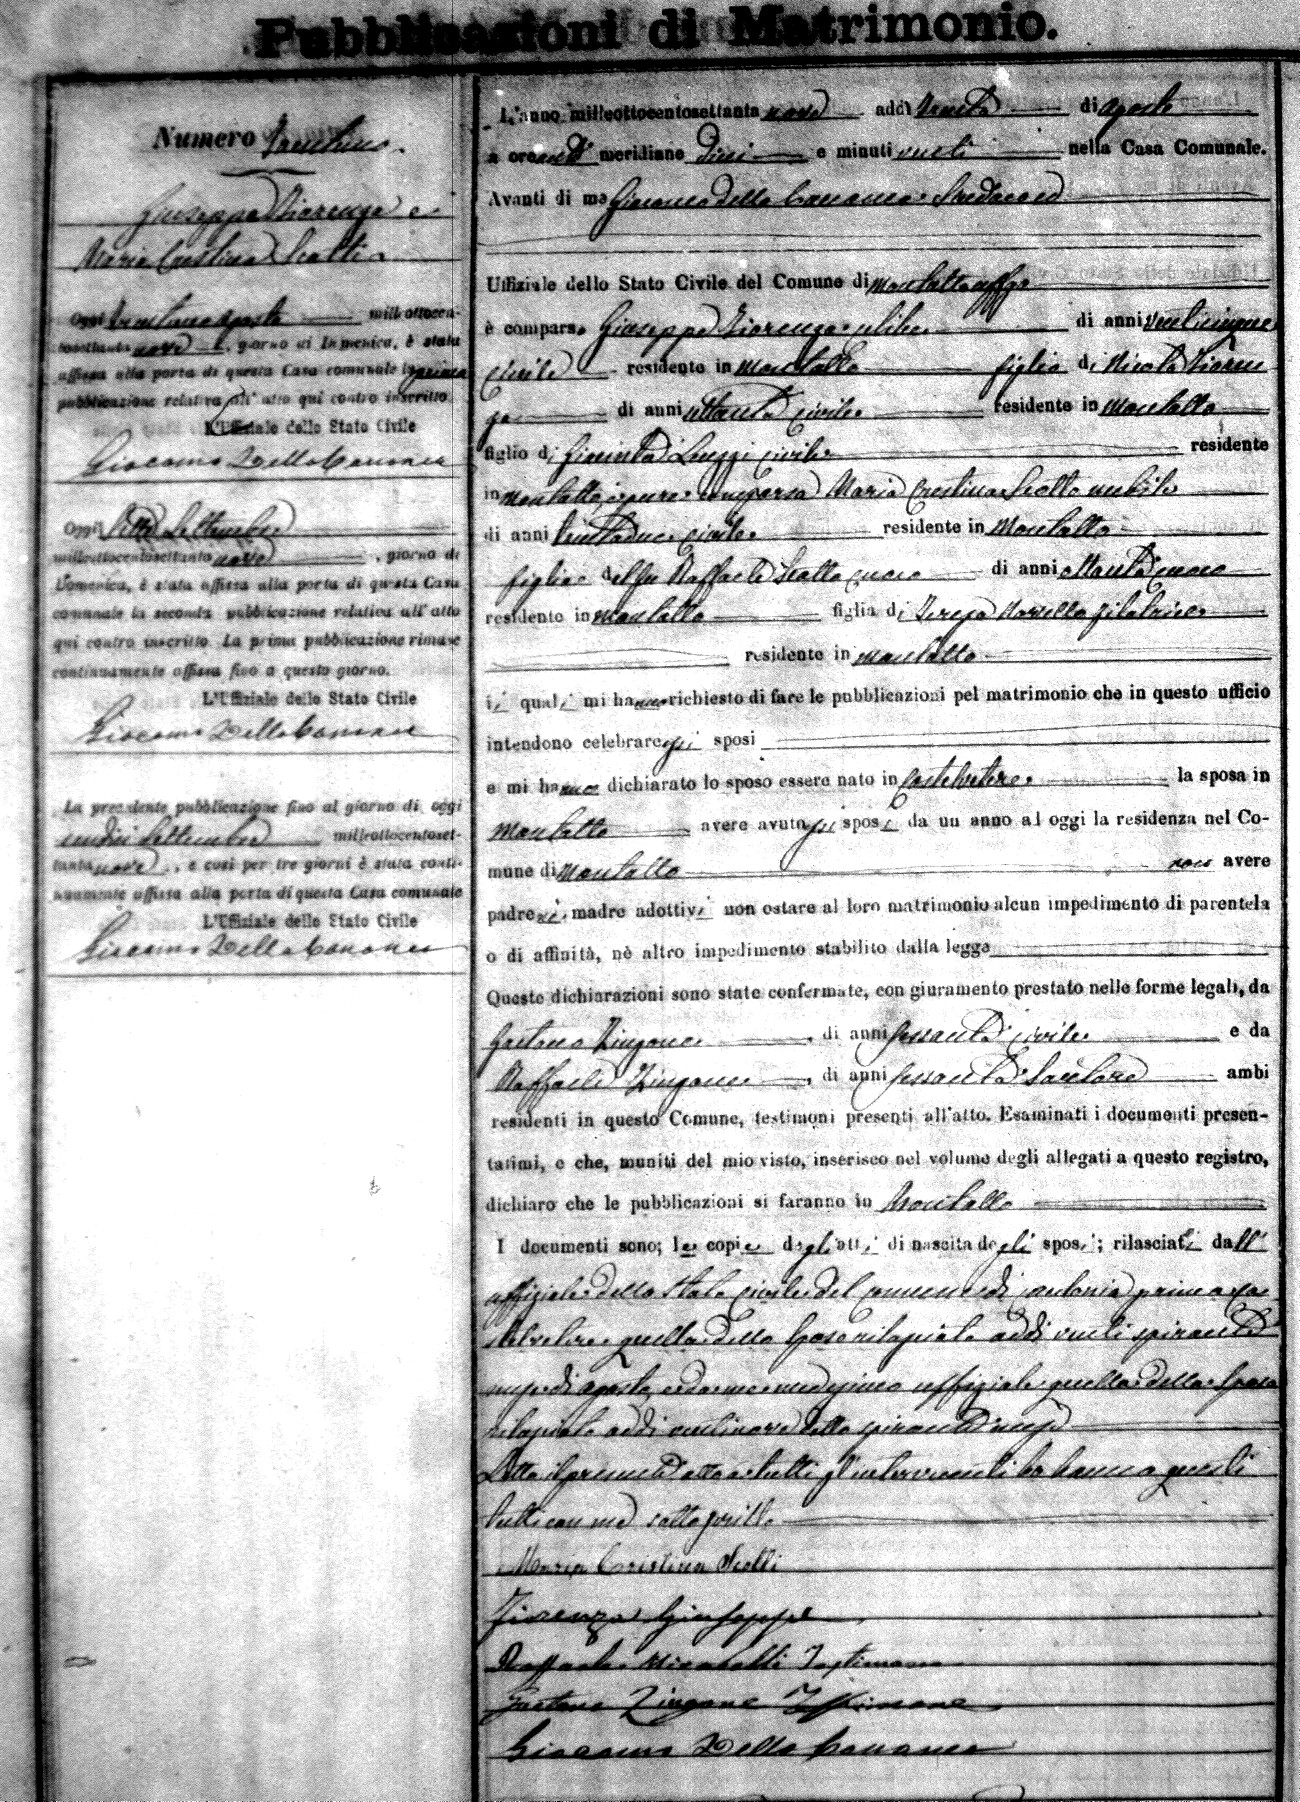 Pubblicazioni di Matrimonio.
Numero
Giuseppe Fiorenza e
Maria Cristina Scotti
Oggi trentuno Agosto milleottocen-
tosettanta nove, giorno di Domenica, è stata
affissa alla porta di questa Casa comunale la prima
pubblicazione relativa all'atto qui contro inscritto.
L'Uffiziale dello Stato Civile
Giacomo Della Cananea
Oggi sette Settembre
milleottocentosettanta nove, giorno di
Domenica, è stata affissa alla porta di questa Casa
comunale la seconda pubblicazione relativa all'atto
qui contro inscritto. La prima pubblicazione rimase
continuamente affissa fino a questo giorno.
L'Uffiziale dello Stato Civile
Giacomo Della Cananea
La precedente pubblicazione fino al giorno di oggi
undici Settembre milleottocentoset-
tanta nove, e così per tre giorni è stata conti-
nuamente affissa alla porta di questa Casa comunale
L'Uffiziale dello Stato Civile
Giacomo Della Cananea
L'anno milleottocentosettanta nove addì trenta di Agosto
a ore anti meridiane dieci e minuti venti nella Casa Comunale.
Avanti di me Giacomo della Cananea Sindaco ed
Uffiziale dello Stato Civile del Comune di Montalto Uffugo
è comparso Giuseppe Fiorenza celibe di anni venticinque
civile residente in Montalto figlio di Nicola Fioren
za di anni ottanta civile residente in Montalto
figlio di Giacinta civile residente
in Montalto, è pure comparsa Maria Cristina Scotto nubile
di anni trentadue civile residente in Montalto
figlia del fu Raffaele Scotto cuoco di anni ottanta cuoco
residente in Montalto figlia di Teresa filatrice
residente in Montalto
i quali mi hanno richiesto di fare le pubblicazioni pel matrimonio che in questo ufficio
intendono celebrare gli sposi
e mi hanno dichiarato lo sposo essere nato in Castelvetere la sposa in
Montalto avere avuto gli sposi da un anno al oggi la residenza nel Co-
mune di Montalto non avere
padre nè madre adottivi non ostare al loro matrimonio alcun impedimento di parentela
o di affinità, nè altro impedimento stabilito dalla legge
Queste dichiarazioni sono state confermate, con giuramento prestato nelle forme legali, da
Gaetano Zingone, di anni sessanta civile e da
Raffaele Zingone, di anni sessanta Sartore ambi
residenti in questo Comune, testimoni presenti all'atto. Esaminati i documenti presen-
tatimi, e che, muniti del mio visto, inserisco nel volume degli allegati a questo registro,
dichiaro che le pubblicazioni si faranno in Montalto
I documenti sono; le copie degli atti di nascita degli sposi; rilasciati dall'
uffiziale dello Stato Civile del Comune di Caulonia prima Ca
stelvetere quella dello sposo rilasciata addì venti spirante
mese di Agosto, e da me medesimo uffiziale quella della sposa
rilasciata addì ventinove dello spirante mese
Letto il presente atto a tutti gl'intervenuti lo hanno questi
tutti con me sottoscritto
Maria Cristina Scotti
Fiorenza Giuseppe
Raffaele Testimone
Gaetano Zingone Testimone
Giacomo Della Cananea